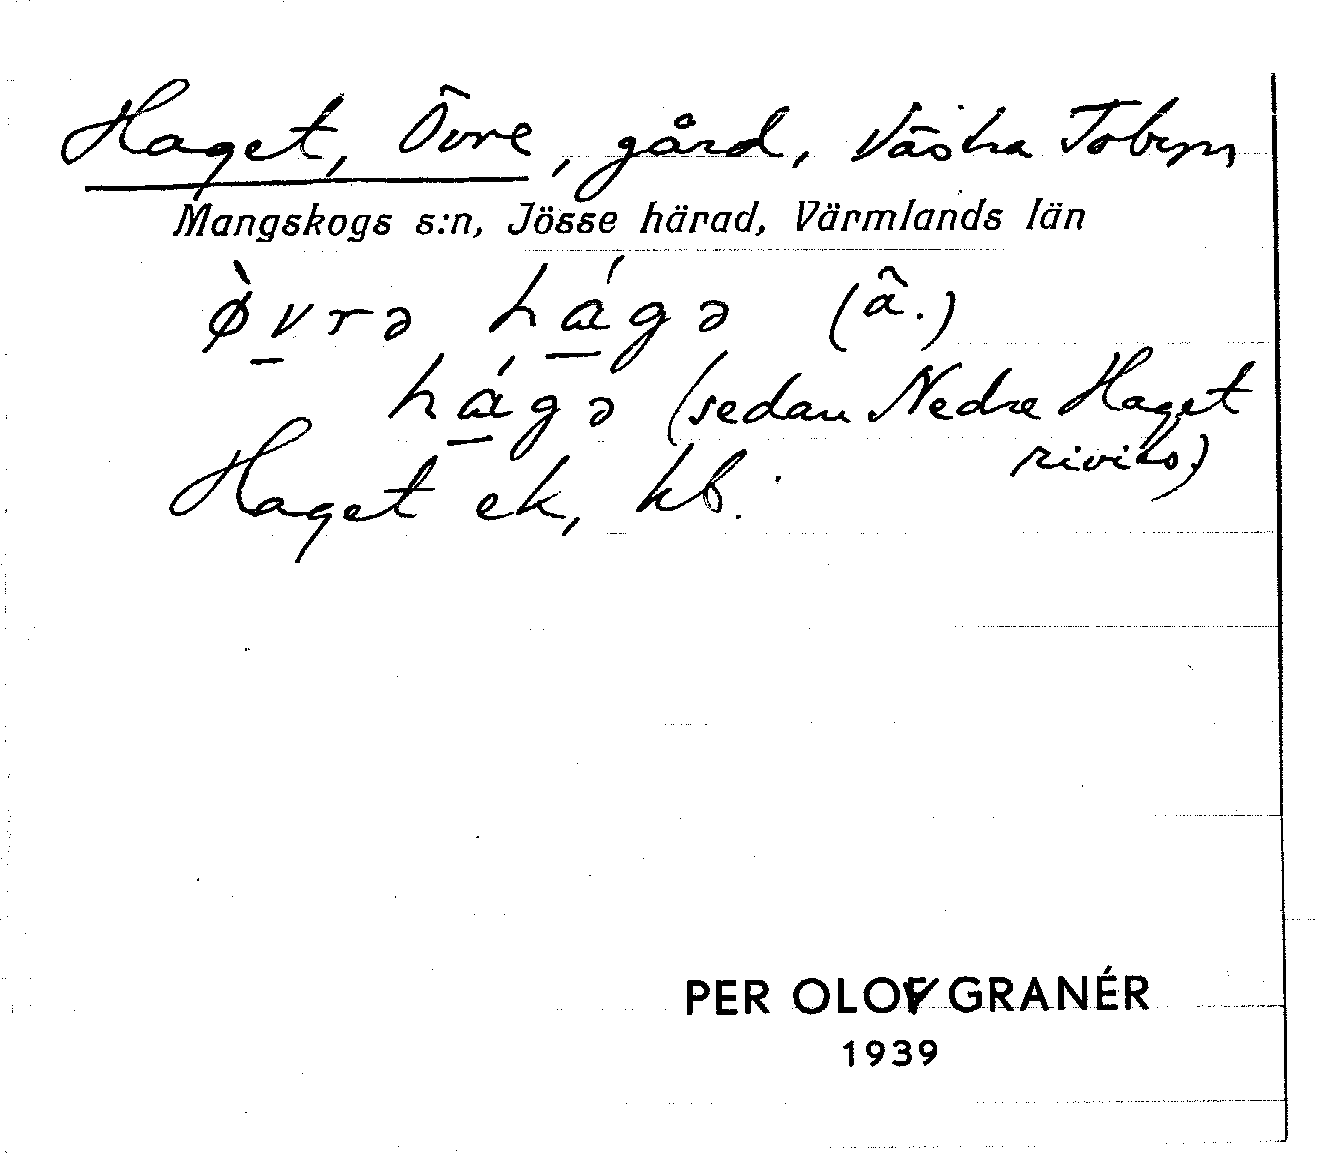 Haget, Övre, gård, Västra Tobyn
Mangskogs s:n, Jösse härad, Värmlands län
ø̀v̲rə há̲gə (ä.)
há̲gə (sedan Nedre Haget
rivits)
Haget ek, kb.
PER OLOV GRANÉR
1939